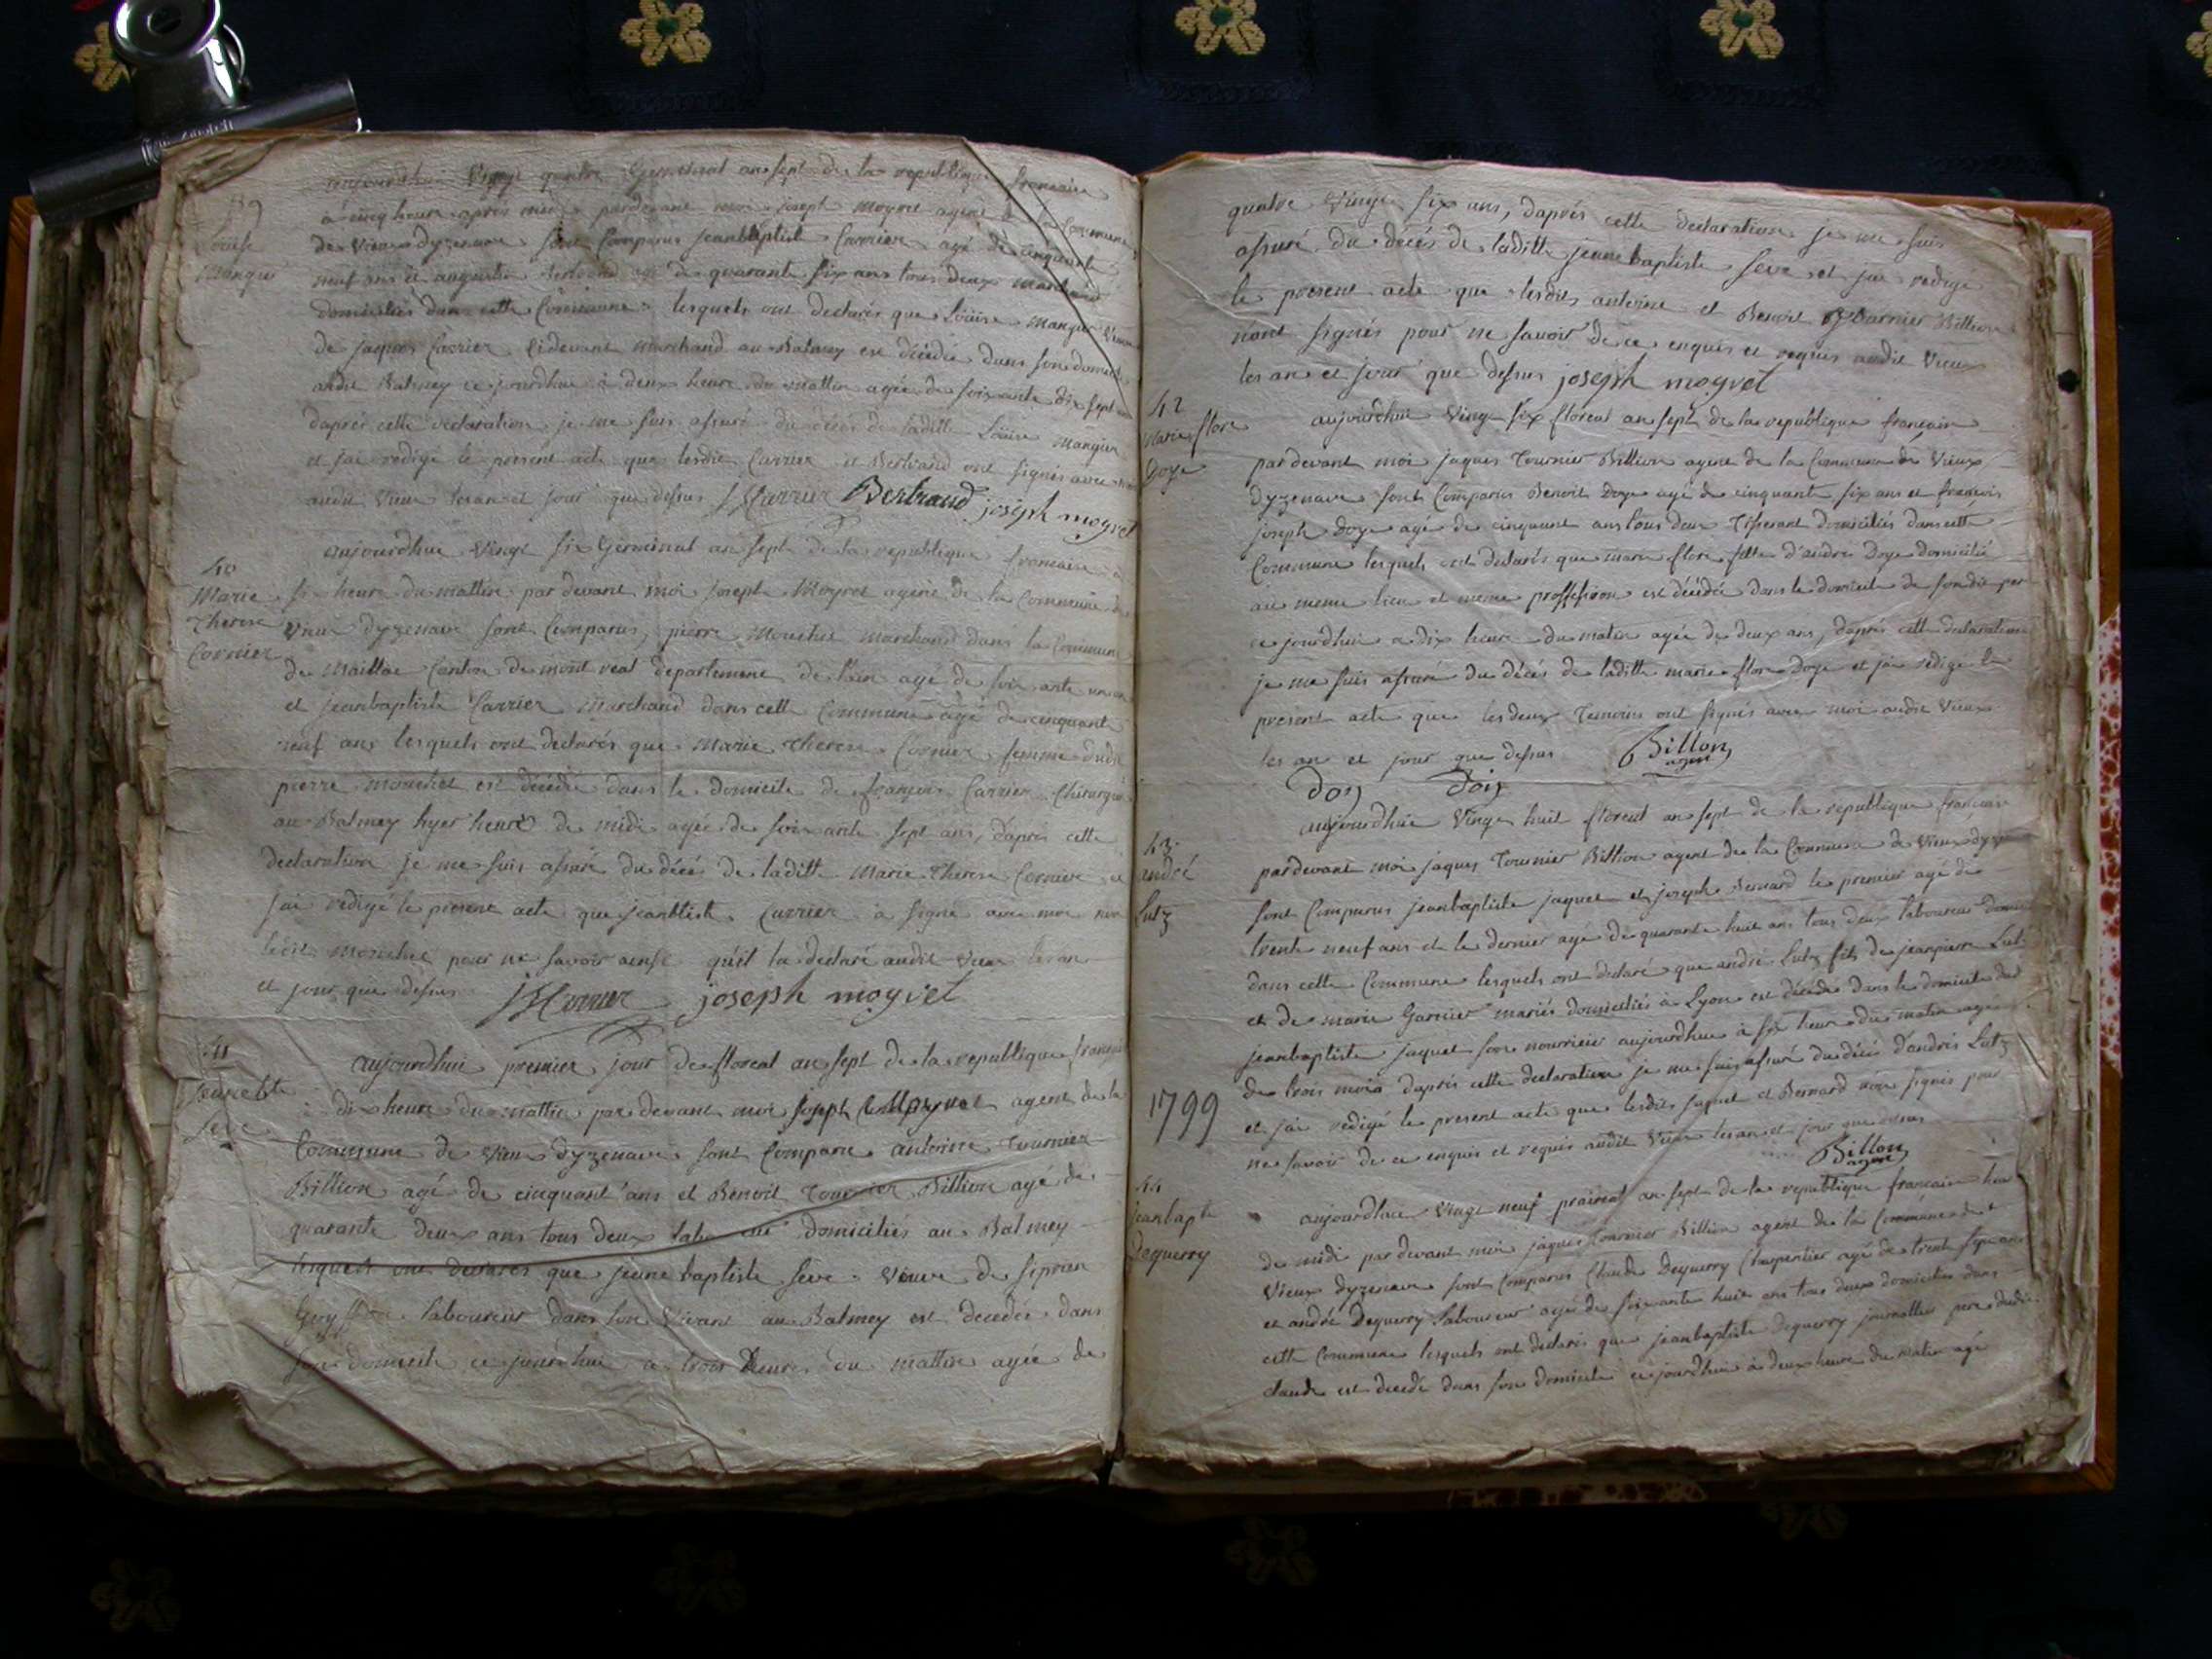 39
Louise
Mangui
aujourdhui Vingt quatre Germinal an sept de la republique francaise
à cinq heure apres midi pardevant moi joseph moyret agent de la Commune
de Vieux dyzenave sont Comparus jeanbaptiste Carrier agé de cinquante
neuf ans et augustin Bertrand agé de quarante six ans tous deux marchand
domiciliés dans cette Commune lesquels ont declarés que Loüise Manguir veuve
de jaques Carrier Cidevant marchand au Balmey est décedée dans son domicile
audit Balmey ce jourdhui à deux heure du mattin agée de soixante dix sept
daprés cette declaration je me suis assuré du décès de laditte Loüise Manguir
et jai redigé le present acte que lesdit Carrier et Bertrand ont signés avec moi
audit Vieux les an et jour que dessus JBCarrier Bertrand joseph moyret
40
Marie
Therese
Cornier
aujourdhui Vingt six Germinal an sept de la republique francaise à
six heure du mattin par devant moi joseph Moyret agent de la Commune de
Vieux dyzenave sont Comparus, pierre Mouchet marchand dans la Commune
de Maillac Canton de mont real departement de l'ain agé de soixante un an
et jeanbaptiste Carrier Marchand dans cette Commune agé de cinquante
neuf ans lesquels ont declarés que Marie Therese Cornier femme dudit
pierre mouchet est décedée dans le domicile de françois Carrier Chirurgien
au Balmey hyer heure de midi agée de soixante sept ans, daprés cette
declaration je me suis assuré du décés de laditte Marie Therese Cornier et
jai redigé le present acte que jeanbtiste Carrier à signé avec moi non
ledit mouchet pour ne savoir ainsi quil la declaré audit Vieux les an
et jour que dessus JBCarrier joseph moyret
41
Jeanebte
Seve
aujourdhui premier jour de floreal an sept de la republique francaise
à dix heure du mattin par devant moi joseph Moyret agent de la
Commune de Vieu dyzenave sont Comparu antoine Tournier
Billion agé de cinquant'ans et Benoit Tournier Billion agé de
quarante deux ans tous deux laboureur domiciliés au Balmey
lesquels ont declarés que jeane baptiste seve veuve de siprien
laboureur dans son Vivant au Balmey est decedée dans
son domicile ce jourdhui à trois heures du mattin agée de
quatre Vingt six ans, daprés cette declaration je me suis
assuré du décès de laditte jeane baptiste seve et jai redigé
le present acte que lesdits antoine et Benoit Tournier Billion
nont signés pour ne savoir de ce enquis et requis audit Vieux
les an et jour que dessus joseph moyret
42
Marie flore
Doye
aujourdhui Vingt six floreal an sept de la republique francaise
pardevant moi jaques Tournier Billion agent de la Commune de Vieux
dyzenave sont Comparus Benoit Doye agé de cinquante six ans et francois
joseph Doye agé de cinquant ans tous deux Tisserant domiciliés dans cette
Commune lesquels ont declarés que marie flore fille d'andré Doye domicilié
au meme lieu et meme proffession est décédée dans le domicile de sondit pere
ce jourdhui à dix heure du matin agée de deux ans, daprés cette declaration
je me suis assuré du décés de laditte marie flore Doye et jai redigé le
present acte que les deux Temoins ont signés avec moi audit Vieux
les an et jour que dessus Billon
agent
Doy Doiy
43
andré
Lutz
aujourdhui Vingt huit floreal an sept de la republique francaise
pardevant moi jaques Tournier Billion agent de la Commune de Vieux dyze
sont Comparus jeanbaptiste jaquet et joseph Bernard le premier agé de
trente neuf ans et le dernier agé de quarante huit ans tous deux laboureur
dans cette Commune lesquels ont declaré que andré Lutz fils de jeanpierre Lutz
et de marie Garnier mariés domiciliés à Lyon est décédé dans le domicile dud
jeanbaptiste jaquet son nourricier aujourdhui à six heure du matin agé
de trois mois daprés cette declaration je me suis assuré du décé dandré Lutz
1799
et jai redigé le present acte que lesdits jaquet et Bernard non signés pour
ne savoir de ce enquis et requis audit Vieux les an et jour que dessus
Billon
agent
44
jeanbapte
Dequerry
aujourdhui Vingt neuf prairial an sept de la republique francaise heure
de midi par devant moi jaques Tournier Billion agent de la Commune de
Vieux dyzenave sont Comparus Claude Dequerry Charpentier agé de trente sept ans
et andré Dequerry laboureur agé de soixante huit ans tous deux domiciliés dans
cette Commune lesquels ont declarés que jeanbaptiste Dequerry journallier pere dudit
claude est decedé dans son domicile ce jourdhui à deux heure du matin agé